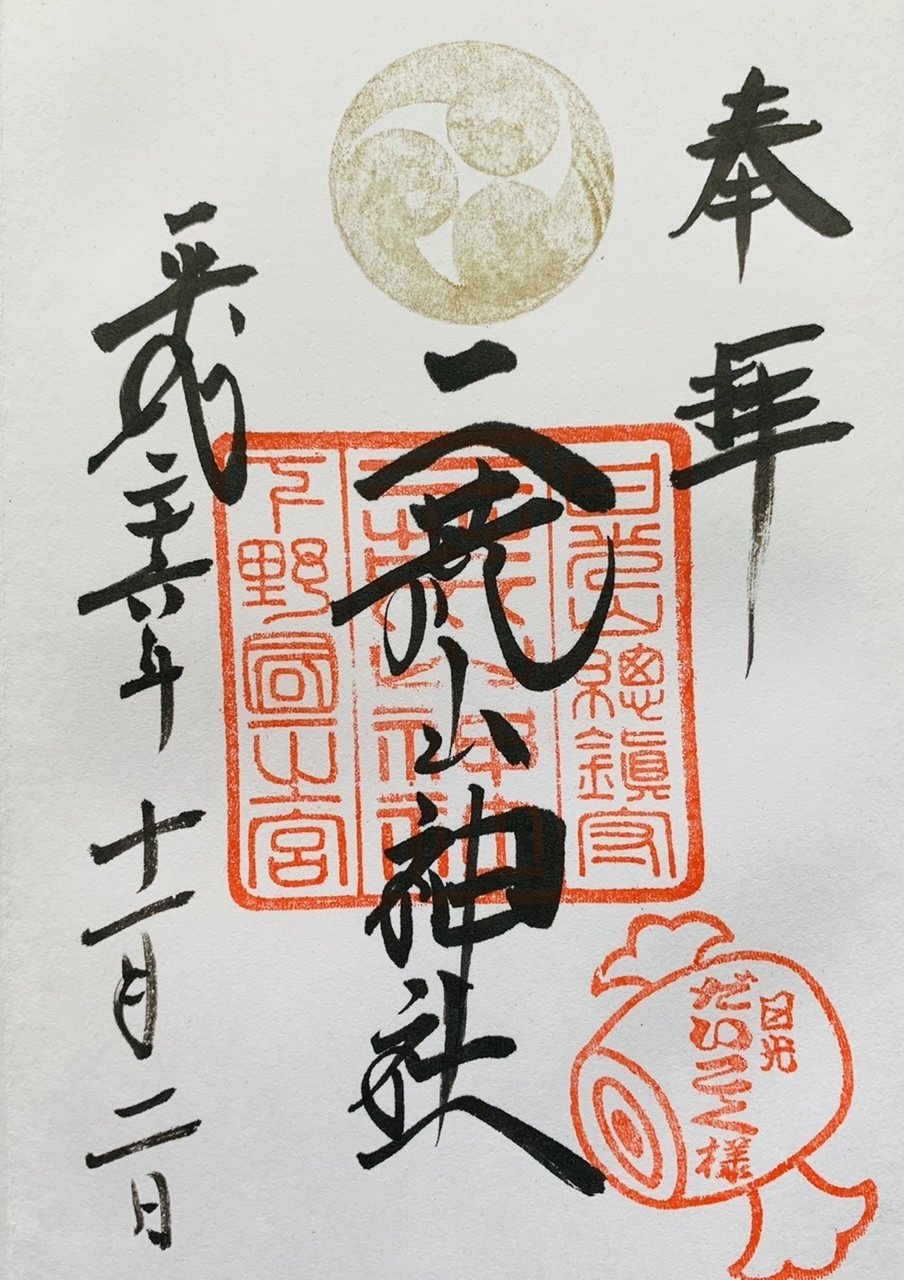 奉拝
日光山總鎮守
二荒山神社
二荒山神社
下野國一之宮
平成二十六年十一月二日
日光
だいこく様